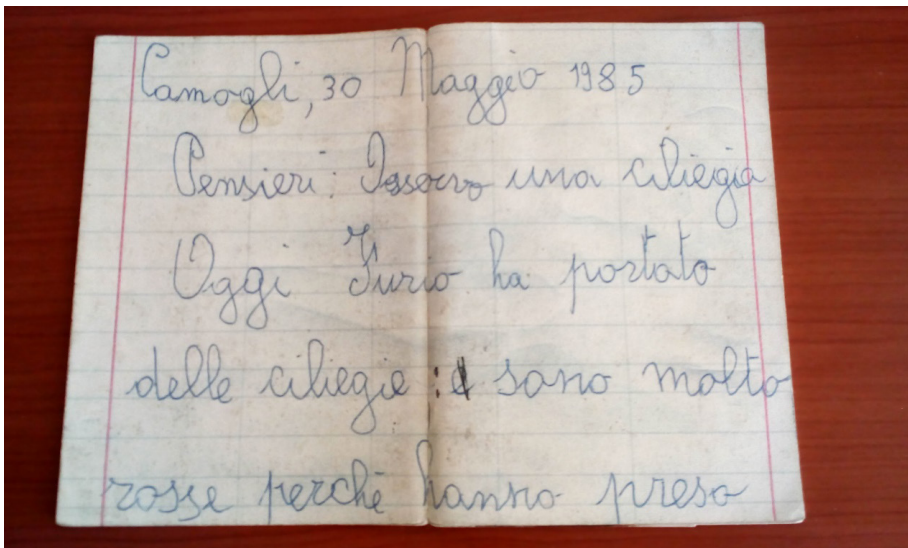 Camogli, 30 Maggio 1985
Pensieri: Osservo una ciliegia
Oggi Furio ha portato
delle ciliegie: sono molto
rosse perchè hanno preso